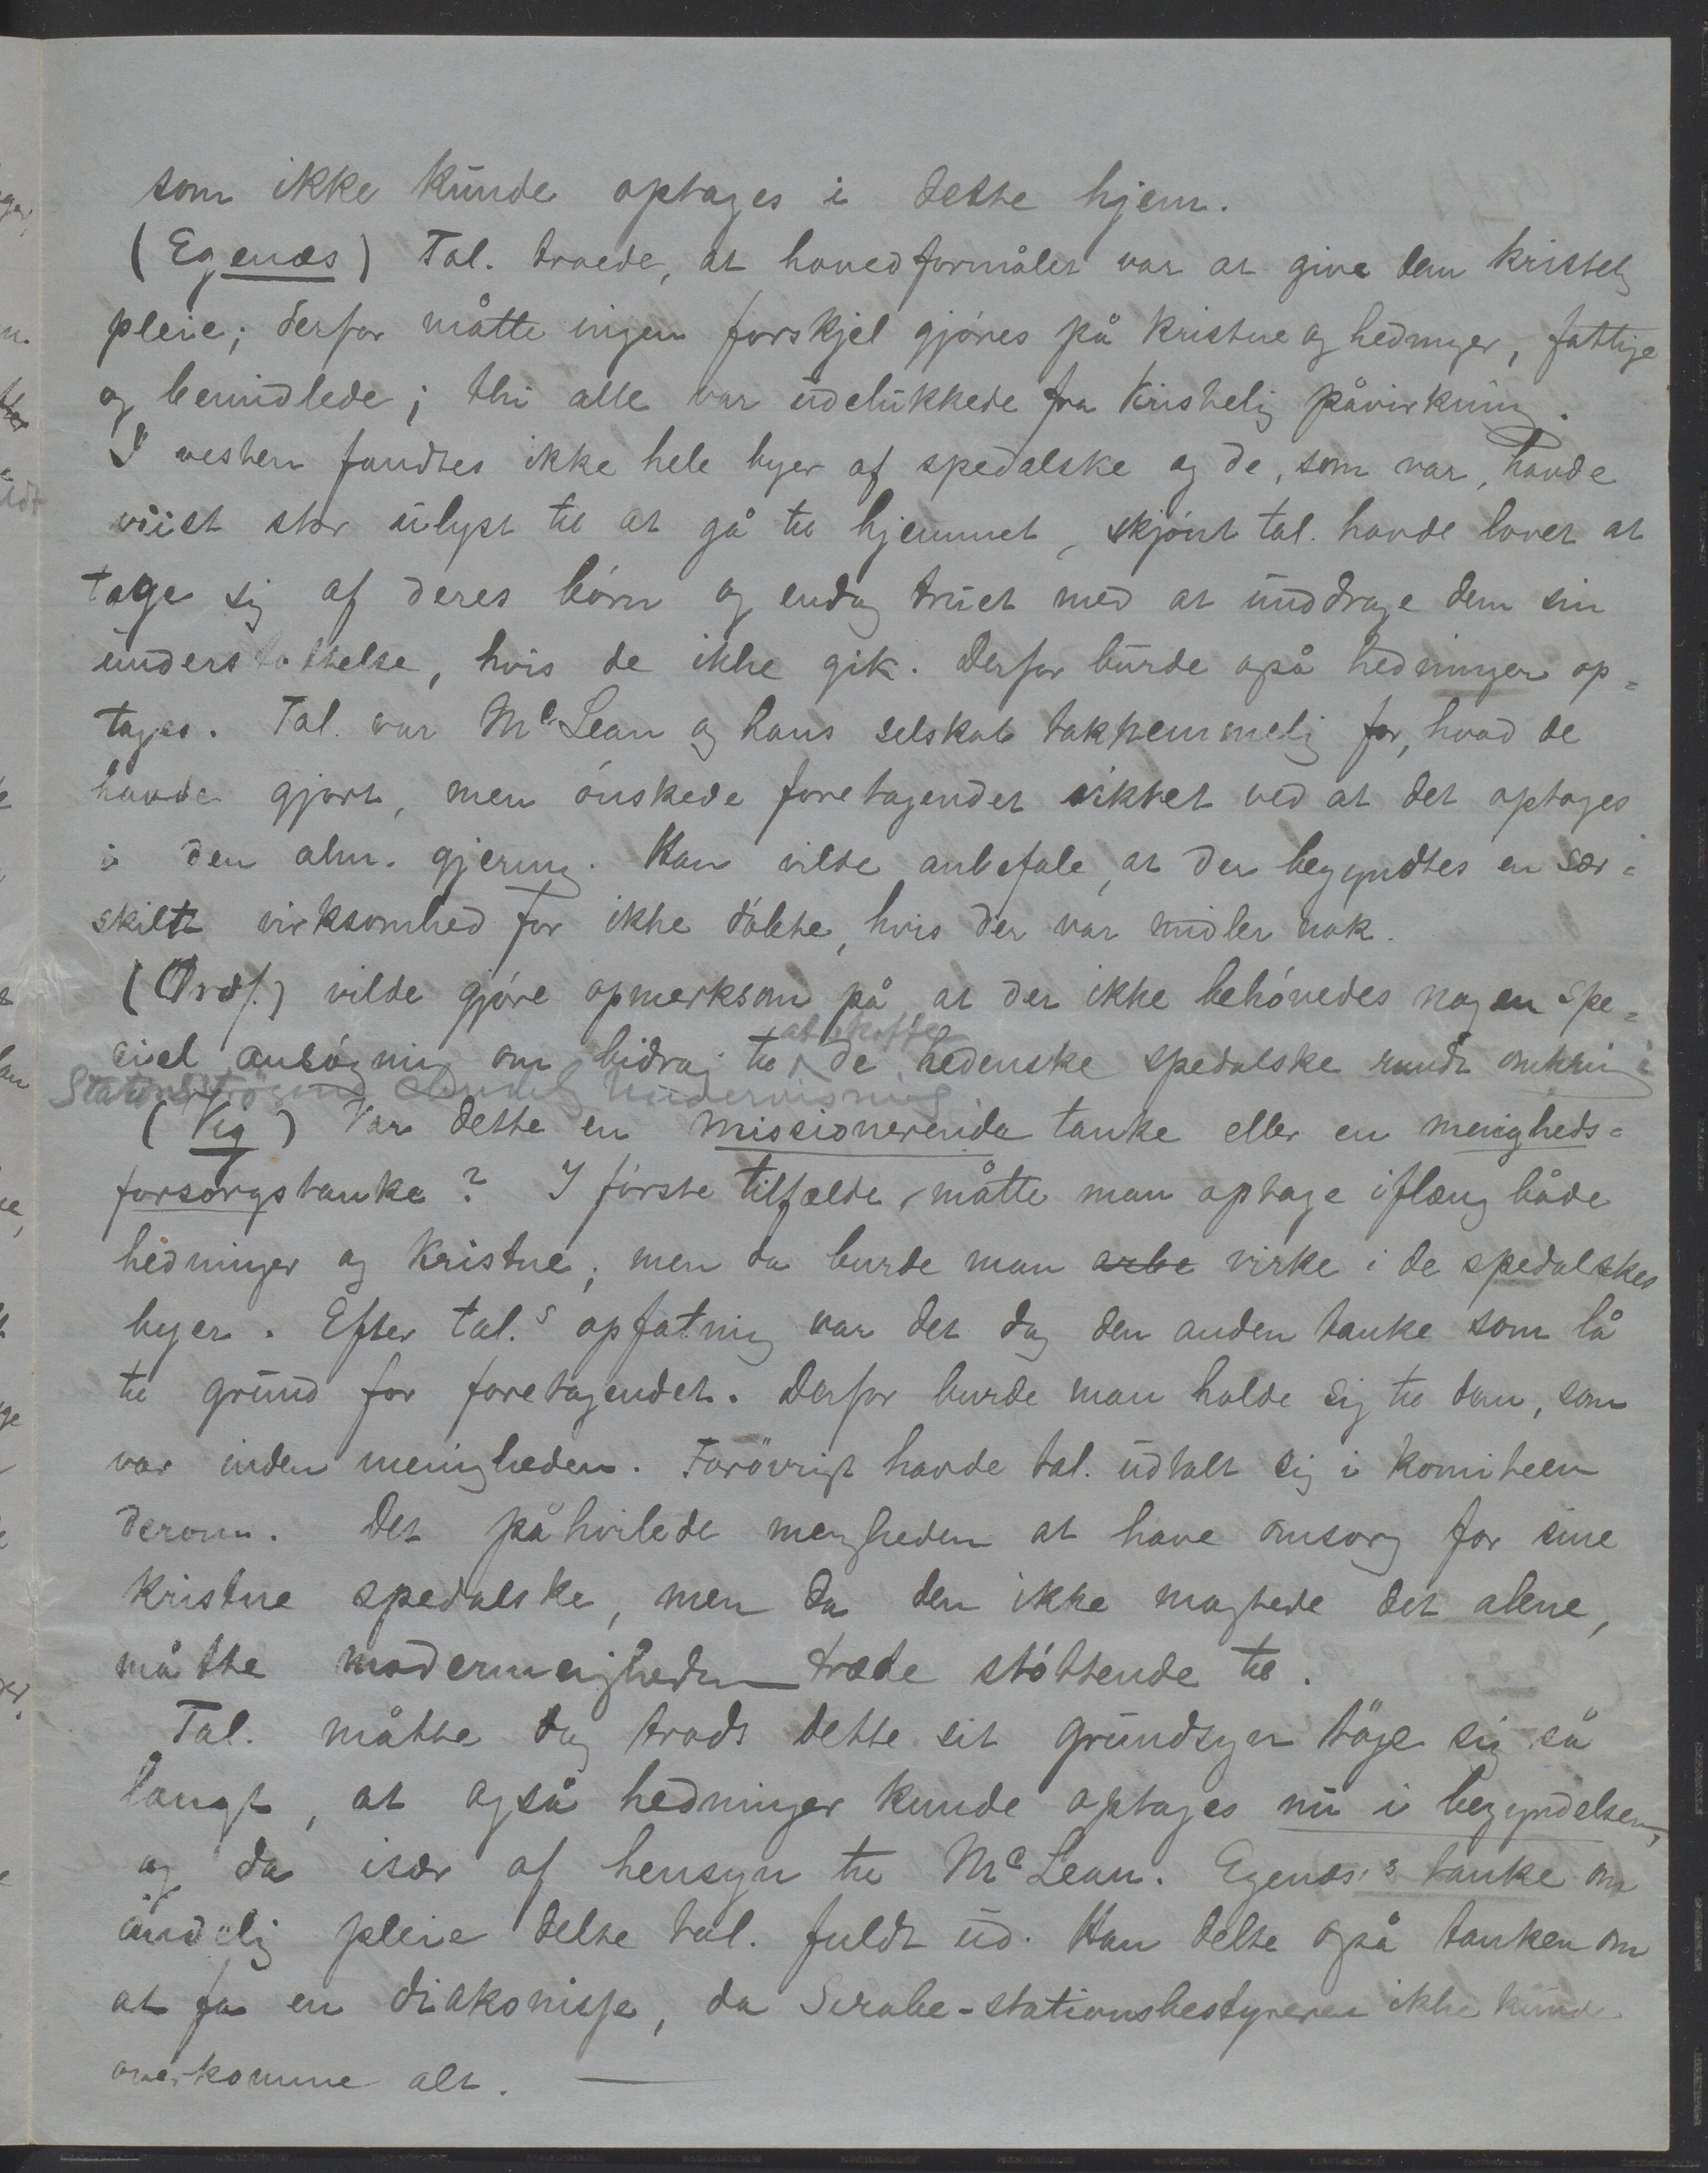 som ikke kunde optages i dette hjem.
(Egenæs) Tal. troede, at hovedformålet var at give dem kristelig
pleie; derfor måtte ingen forskjel gjöres på kristne og hedninger, fattige
og bemidlede; thi alle var udelukkede fra kristelig påvirkning.
I vesten fandtes ikke hele byer af spedalske og de, som var, havde
viist stor ulyst til at gå til hjemmet, skjönt tal. havde lovet at
tage sig af deres börn og endog truet med at unddrage dem sin
understøttelse, hvis de ikke gik. Derfor burde også hedninger op=
tages. Tal. var McLean og hans selskab taknemmelig for, hvad de
havde gjort, men önskede foretagendet sikret ved at det optages
i den alm. gjerning. Han vilde anbefale, at der begyndtes en sær=
skilt virksomhed for ikke döbte, hvis der var midler nok.
(Ordf.) vilde gjöre opmerksom på at der ikke behövedes nogen spe=
ciel ansögning om bidrag til at skaffe de hedenske spedalske rundt omkring i
Stationströgene åndelig Undervisning
(Vig) Var dette en missionerende tanke eller en menigheds=
forsorgstanke? I förste tilfælde måtte man optage iflæng både
hedninger og kristne; men da burde man arbe virke i de spedalskes
byer. Efter tal.s opfatning var det dog den anden tanke som lå
til grund for foretagendet. Derfor burde man holde sig til dem, som
var inden menigheden. Forövrigt havde tal. udtalt sig i komiteen
derom. Det påhvilede menigheden at have omsorg for sine
kristne spedalske, men da den ikke magtede det alene,
måtte modermenigheden træde stöttende til.
Tal. måtte dog trods dette sit grundsyn böge sig så
langt, at også hedninger kunde optages nu i begyndelsen,
og da især af hensyn til McLean. Egenæs's tanke om
åndelig pleie delte tal. fuldt ud. Han delte også tanken om
at få en diakonisse, da Sirabe-stationsbestyreren ikke kunde
overkomme alt. —